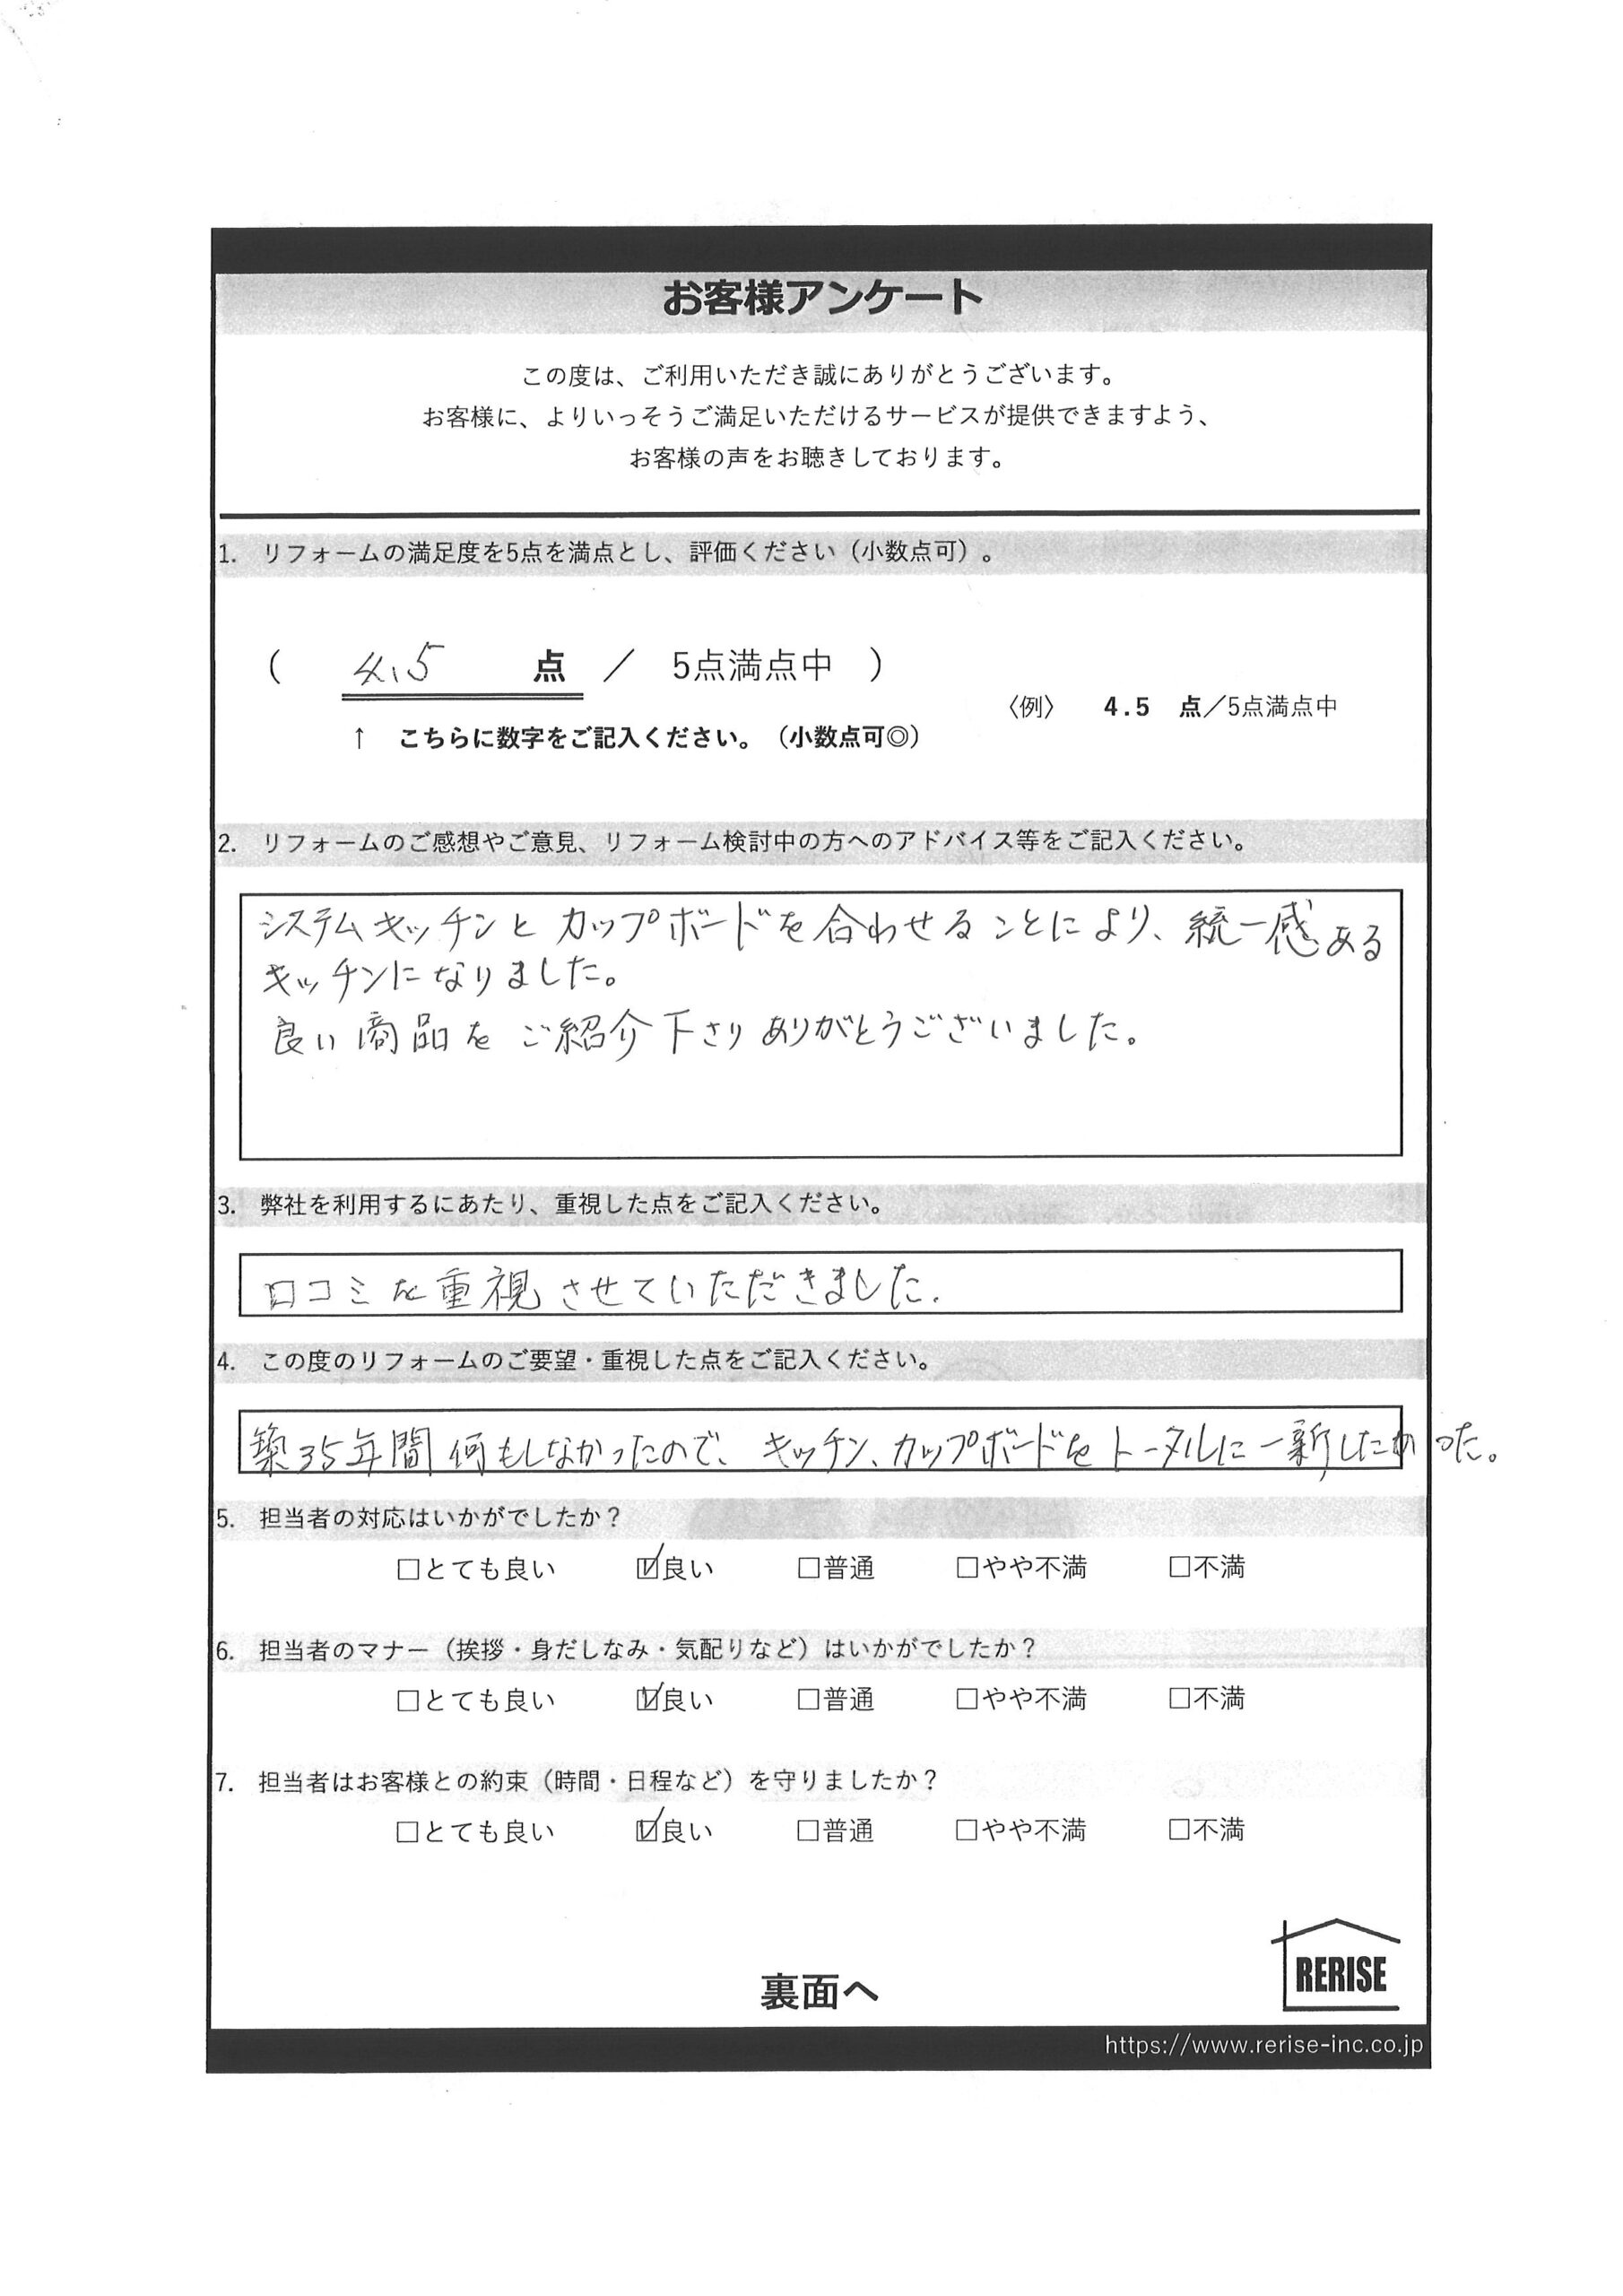 お客様アンケート
この度は、ご利用いただき誠にありがとうございます。
お客様に、よりいっそうご満足いただけるサービスが提供できますよう、
お客様の声をお聴きしております。
1. リフォームの満足度を5点を満点とし、評価ください（小数点可）。
( 4.5 点 ／ 5点満点中 )
〈例〉 4.5 点／5点満点中
↑ こちらに数字をご記入ください。（小数点可◎）
2. リフォームのご感想やご意見、リフォーム検討中の方へのアドバイス等をご記入ください。
システムキッチンとカップボードを合わせることにより、統一感ある
キッチンになりました。
良い商品をご紹介下さりありがとうございました。
3. 弊社を利用するにあたり、重視した点をご記入ください。
口コミを重視させていただきました.
4. この度のリフォームのご要望・重視した点をご記入ください。
築35年間何もしなかったので、キッチン、カップボードをトータルに一新したかった。
5. 担当者の対応はいかがでしたか？
□とても良い ☑良い □普通 □やや不満 □不満
6. 担当者のマナー（挨拶・身だしなみ・気配りなど）はいかがでしたか？
□とても良い ☑良い □普通 □やや不満 □不満
7. 担当者はお客様との約束（時間・日程など）を守りましたか？
□とても良い ☑良い □普通 □やや不満 □不満
RERISE
裏面へ
https://www.rerise-inc.co.jp